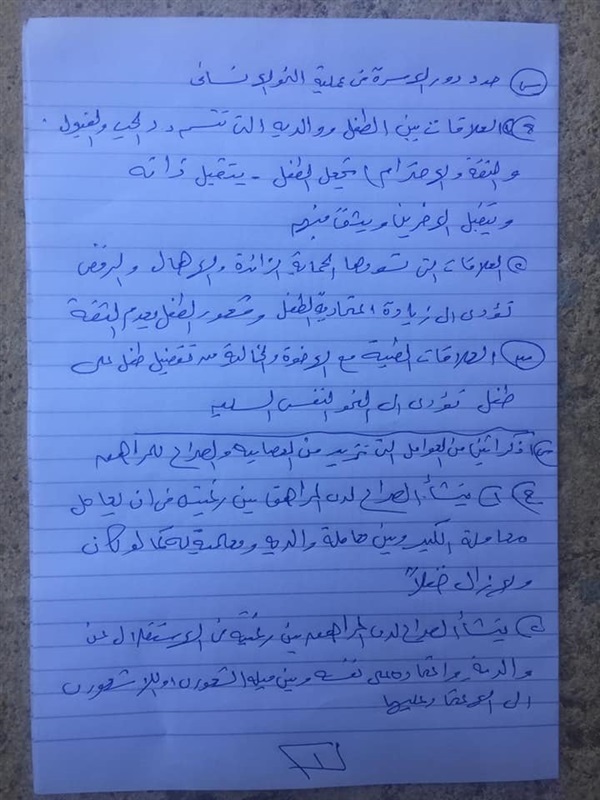 س) حدد دور الاسرة في عملية النمو الانساني
ج) ١) العلاقات بين الطفل ووالديه التي تتسم بـ ( الحب والقبول
والثقة والاحترام ) تجعل الطفل - يتقبل ذاته
ويتقبل الاخرين ويثق بهم
٢) العلاقات التي تسودها الحماية الزائدة والاهمال والرفض
تؤدي الى زيادة اعتمادية الطفل وشعور الطفل بعدم الثقة
٣) العلاقات الطيبة مع الاخوة والخالية من تفضيل طفل على
طفل تؤدي الى النمو النفسي السليم
س) اذكر اثنين من العوامل التي تزيد من العصابية والصراع للمراهق
ج) ١) ينشأ الصراع لدى المراهق بين رغبته في ان يعامل
معاملة الكبير وبين معاملة والديه ومعلميه له كما لو كان
ولا زال طفلاً
٢) ينشأ الصراع لدى المراهق بين رغبته في الاستقلال عن
والديه واعتماده على نفسه وبين ميله الشعوري او اللاشعوري
الى الاعتماد عليهما
١